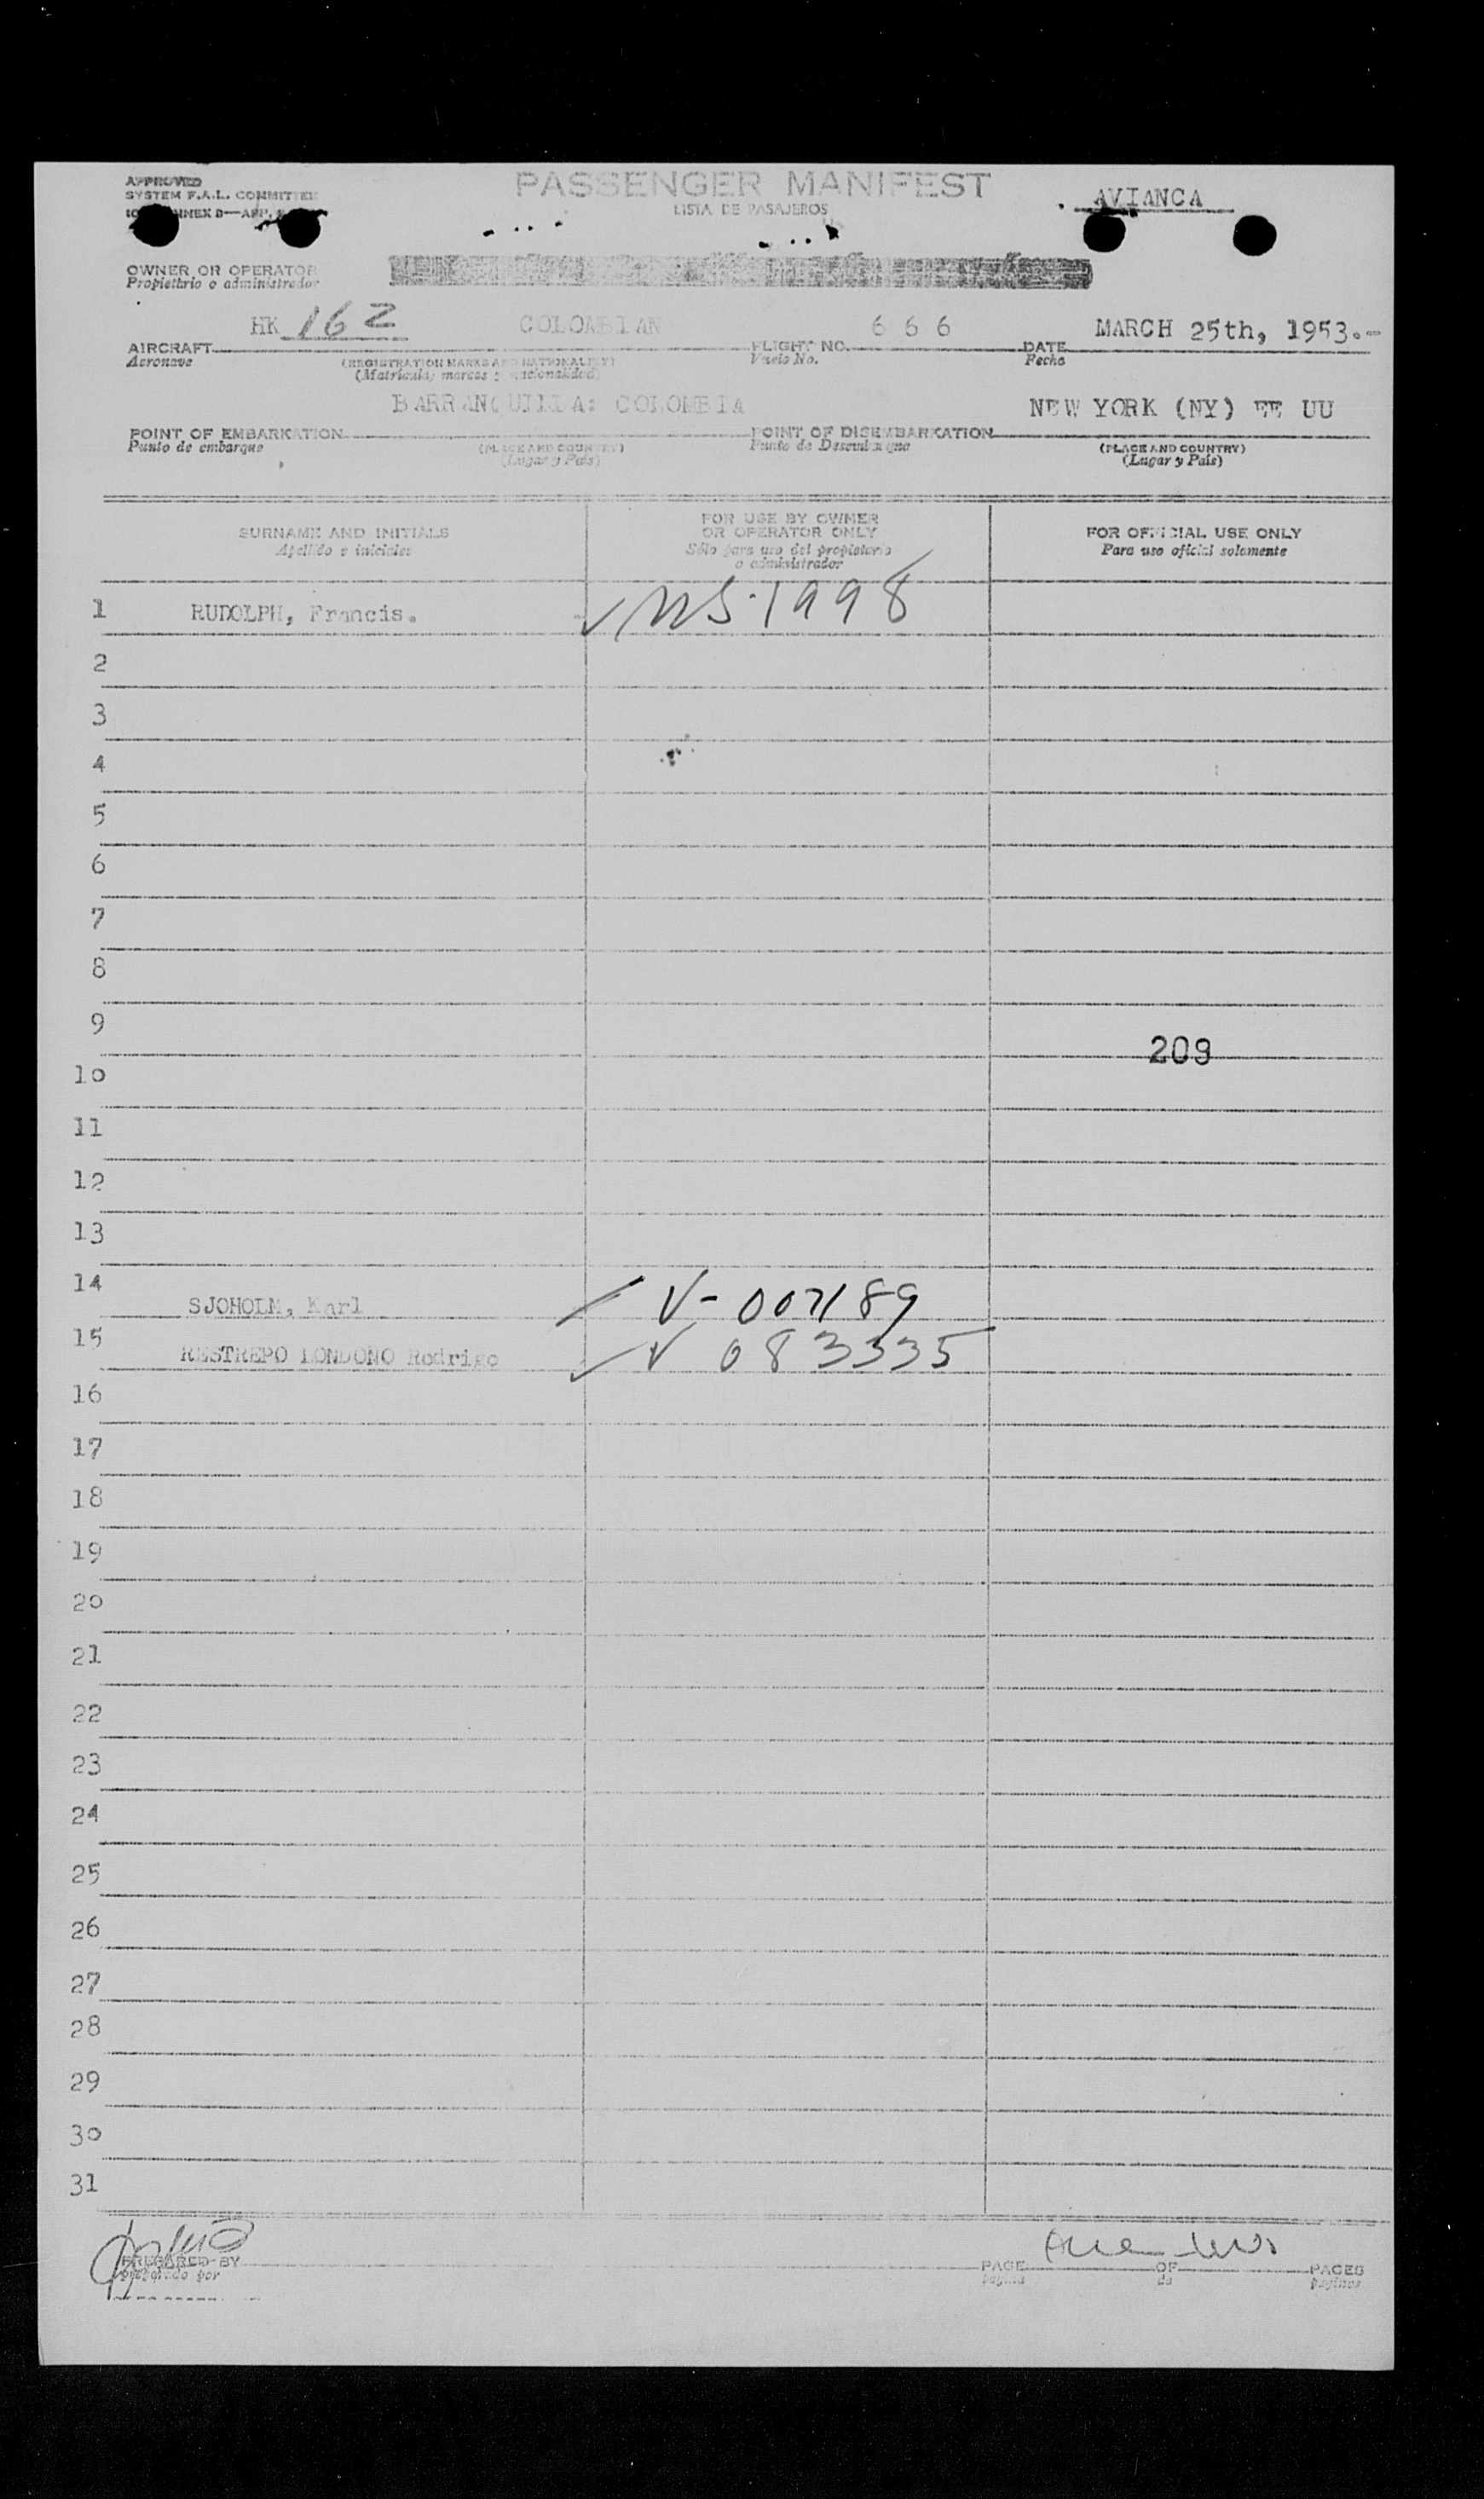 APPROVED
SYSTEM F.A.L. COMMITTEE
ANNEX 9—APP.
PASSENGER MANIFEST
LISTA DE PASAJEROS
AVIANCA
OWNER OR OPERATOR
Propietario o administrador
HK 162 COLOMBIAN 6 6 6 MARCH 25th, 1953.-
AIRCRAFT FLIGHT NO. DATE
Aeronave (REGISTRATION MARKS AND NATIONALITY) Vuelo No. Fecha
(Matricula, marcas y nacionalidad)
BARRANQUILLA: COLOMBIA NEW YORK (NY) EE UU
POINT OF EMBARKATION POINT OF DISEMBARKATION
Punto de embarque (PLACE AND COUNTRY) Punto de Desembarque (PLACE AND COUNTRY)
(Lugar y País) (Lugar y País)
SURNAME AND INITIALS
Apellido e iniciales
FOR USE BY OWNER
OR OPERATOR ONLY
Sólo para uso del propietario
o administrador
FOR OFFICIAL USE ONLY
Para uso oficial solamente
1 RUDOLPH, Francis. 1998
2
3
4
5
6
7
8
9
209
10
11
12
13
14
SJOHOLM, Karl V- 007189
15
RESTREPO LONDONO Rodrigo V 083335
16
17
18
19
20
21
22
23
24
25
26
27
28
29
30
31
PREPARED BY PAGE OF PAGES
preparado por página de páginas